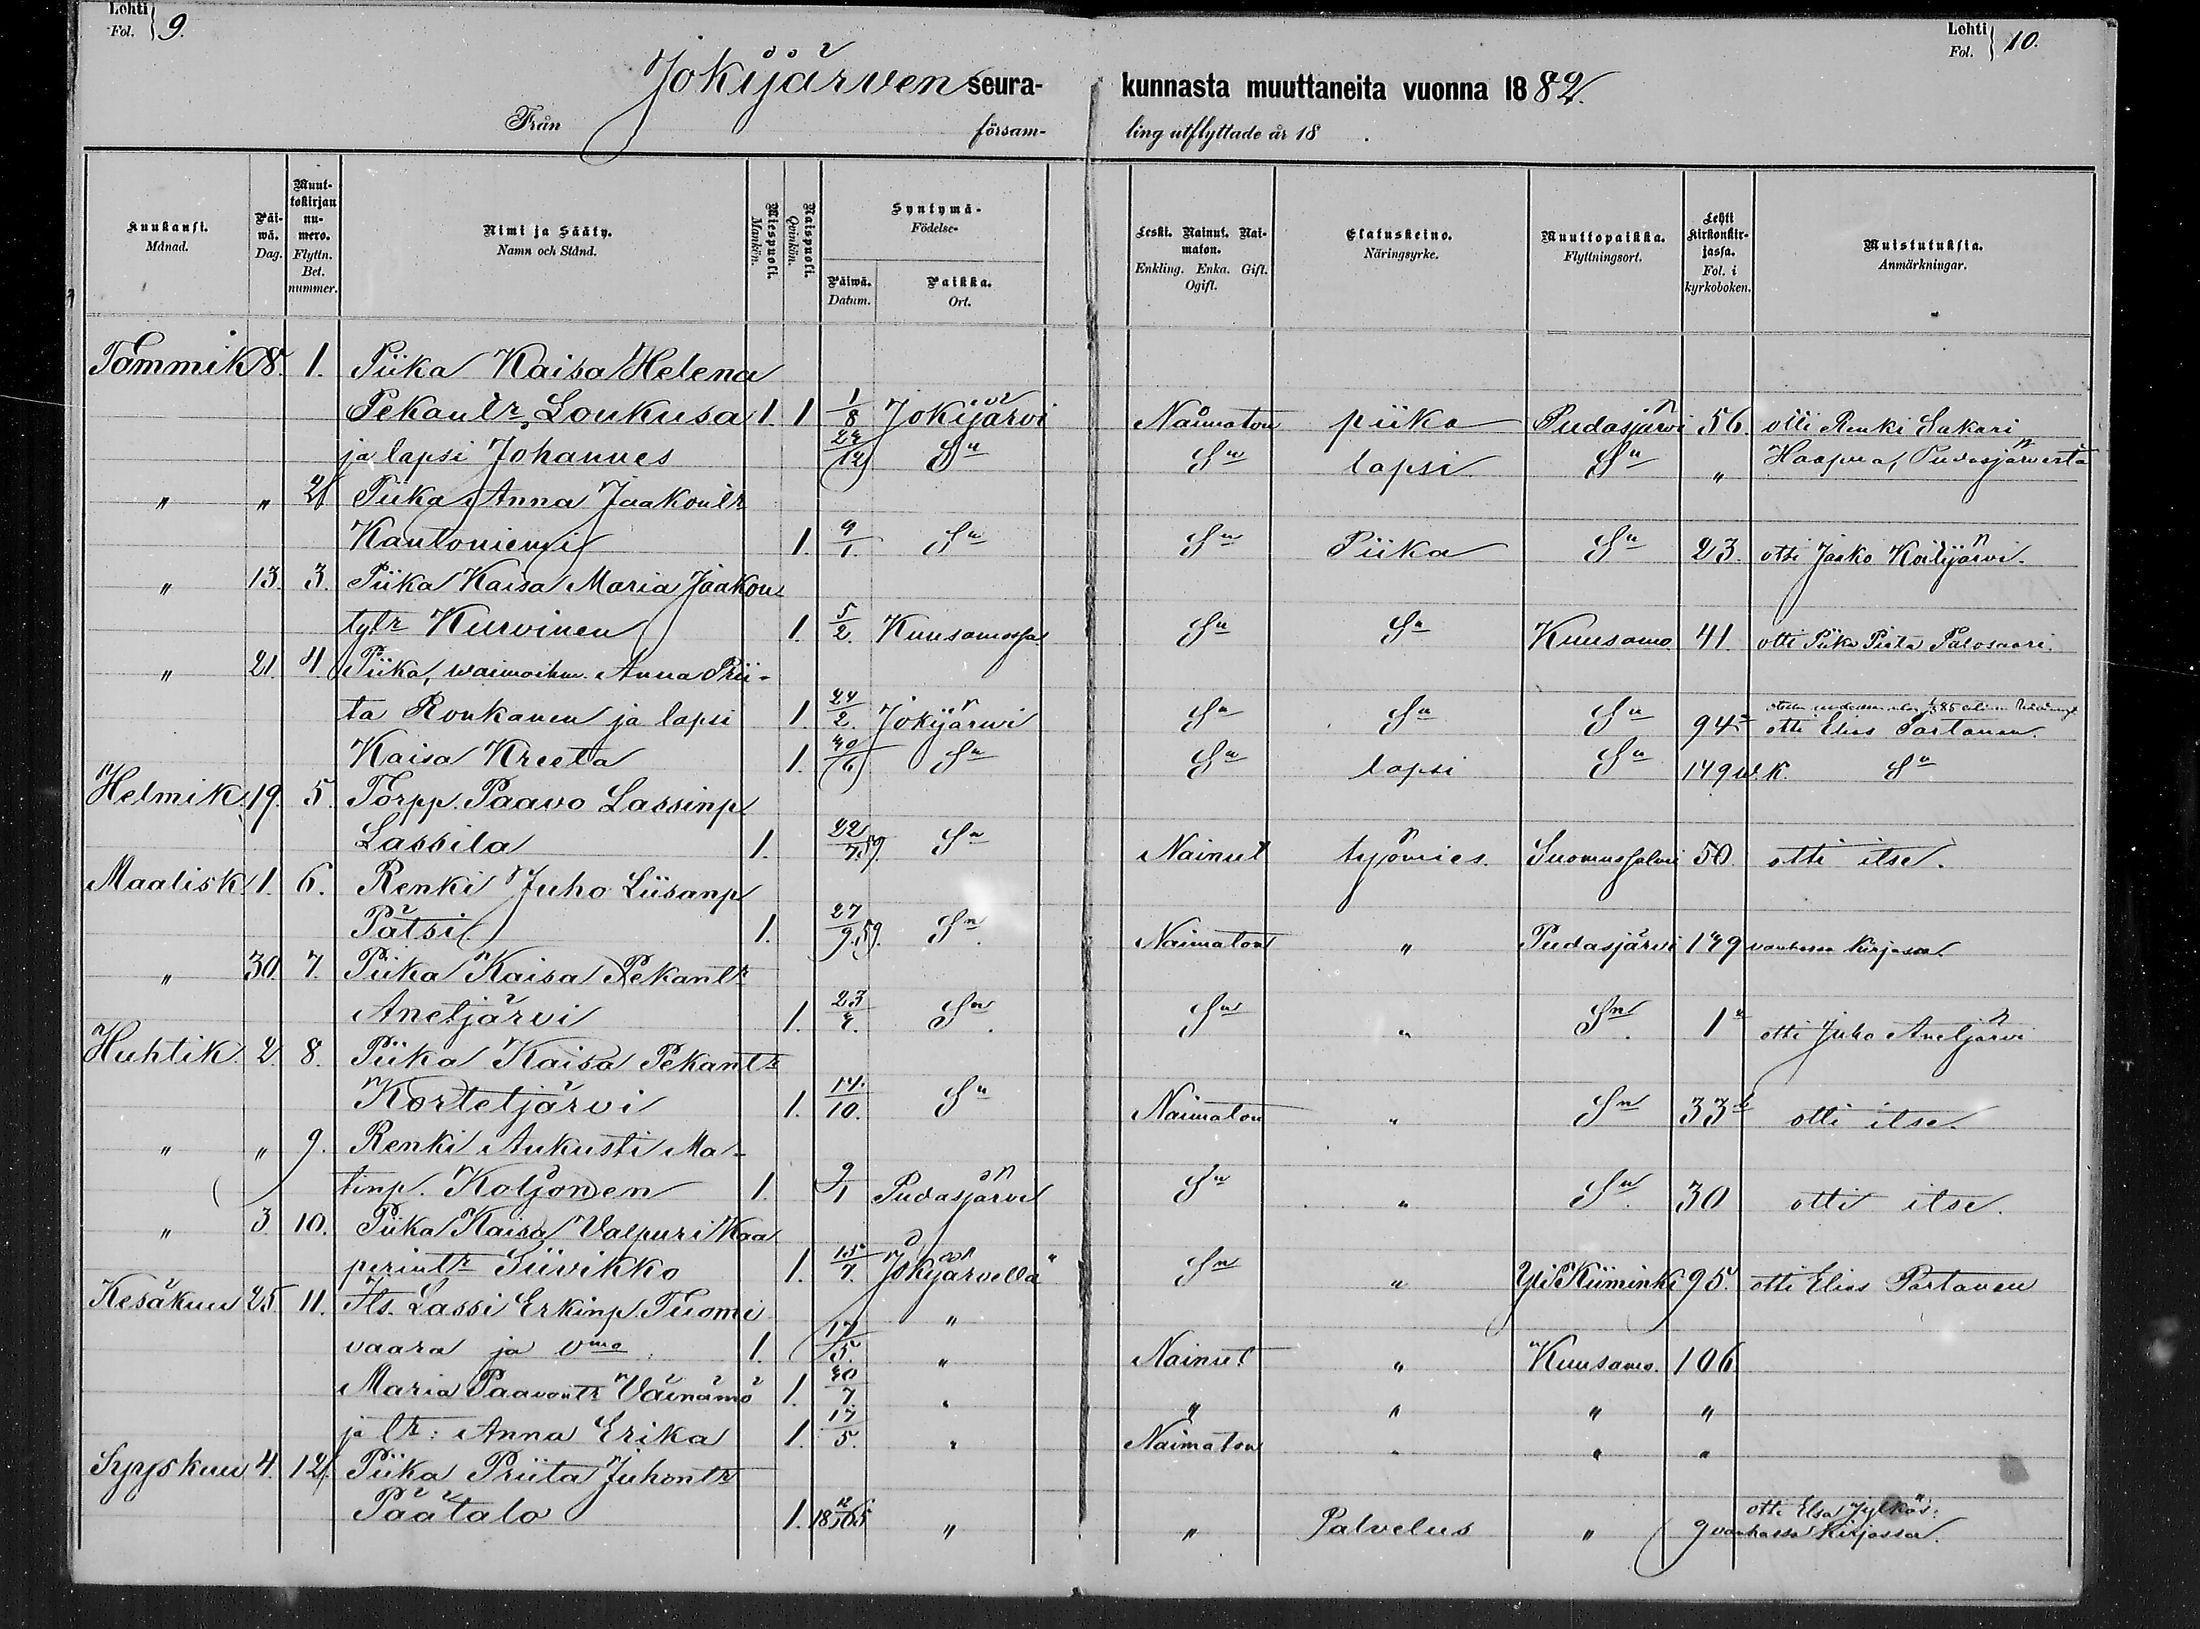 Lehti Fol. 9. Lehti Fol. 10.
Jokijärven seura- kunnasta muuttaneita vuonna 1882.
Från försam- ling utflyttade år 18 .
Kuukausi. Månad. Päiwä. Dag. Muuttokirjan numero. Flyttn. Bet. nummer. Nimi ja Sääty. Namn och Stånd. Miespuoli. Mankön. Naispuoli. Qvinkön. Syntymä- Födelse- Päiwä. Datum. Paikka. Ort. Leski. Nainut. Naimaton. Enkling. Enka. Gift. Ogift. Elatuskeino. Näringsyrke. Muuttopaikka. Flyttningsort. Lehti kirkonkirjassa. Fol. i kyrkoboken. Muistutuksia. Anmärkningar.
Tammik 8. 1. Piika Kaisa Helena
Pekantr Loukusa 1. 1 1/8 Jokijärvi Naimaton piika Pudasjärvi 56. otti Renki Sakari
ja lapsi Johannes Sn Sn lapsi Sn „ Haapua, Pudasjärvestä
„ „ 2 Piika Anna Jaakontr
Kantoniemi 1. 9/1. Sn Sn Piika Sn 23. otti Jaako Koilijärvi.
„ 13. 3. Piika Kaisa Maria Jaakon
tytr Kurvinen 1. 5/2. Kuusamossa Sn Sn Kuusamo 41. otti Piika Piita Palosaari.
„ 21. 4. Piika, waimoihm. Anna Prii-
ta Ronkanen ja lapsi 1 24/2. Jokijärwi Sn Sn Sn 94 otti Elias Partanen.
Kaisa Kreeta 1. Sn Sn lapsi Sn 149 w. k. Sn
Helmik. 19. 5. Torpp. Paavo Lassinp
Lassila 1. 22/7.59. Sn Nainut työmies. Suomussalmi 50. otti itse.
Maalisk. 1. 6. Renki Juho Liisanp
Pätsi 1. 27/9.59. Sn. Naimaton „ Pudasjärvi 149 vanhassa kirjassa.
„ 30. 7. Piika Kaisa Pekantr
Anetjärvi 1. Sn. Sn „ Sn. 1 otti Juho Anetjärvi
Huhtik. 2. 8. Piika Kaisa Pekantr
Kortetjärvi 1. 14./10. Sn Naimaton „ Sn 33 otti itse.
„ „ 9. Renki Aukusti Ma-
tinp. Koljonen 1. 9/1 Pudasjärvi Sn „ Sn. 30 otti itse.
„ 3. 10. Piika Kaisa Valpuri Kaa
perintr Siivikko 1. 15/7. Jokijärvellä Sn „ Yli Kiiminki 95. otti Elias Partanen
Kesäkuu 25 11. Its. Lassi Erkinp. Tuomi „
vaara ja vmo. 1. 17/5. „ Nainut „ Kuusamo. 106
Maria Paavontr Väinämö 1. „ „ „ „ „
ja tr: Anna Erika 1. 17/5. „ Naimaton „ „ „
Syyskuu 4. 12. Piika Priita Juhontr
Päätalo 1. „ „ Palvelus „ otti Elsa Jylkäs:
9 vanhassa kirjassa.